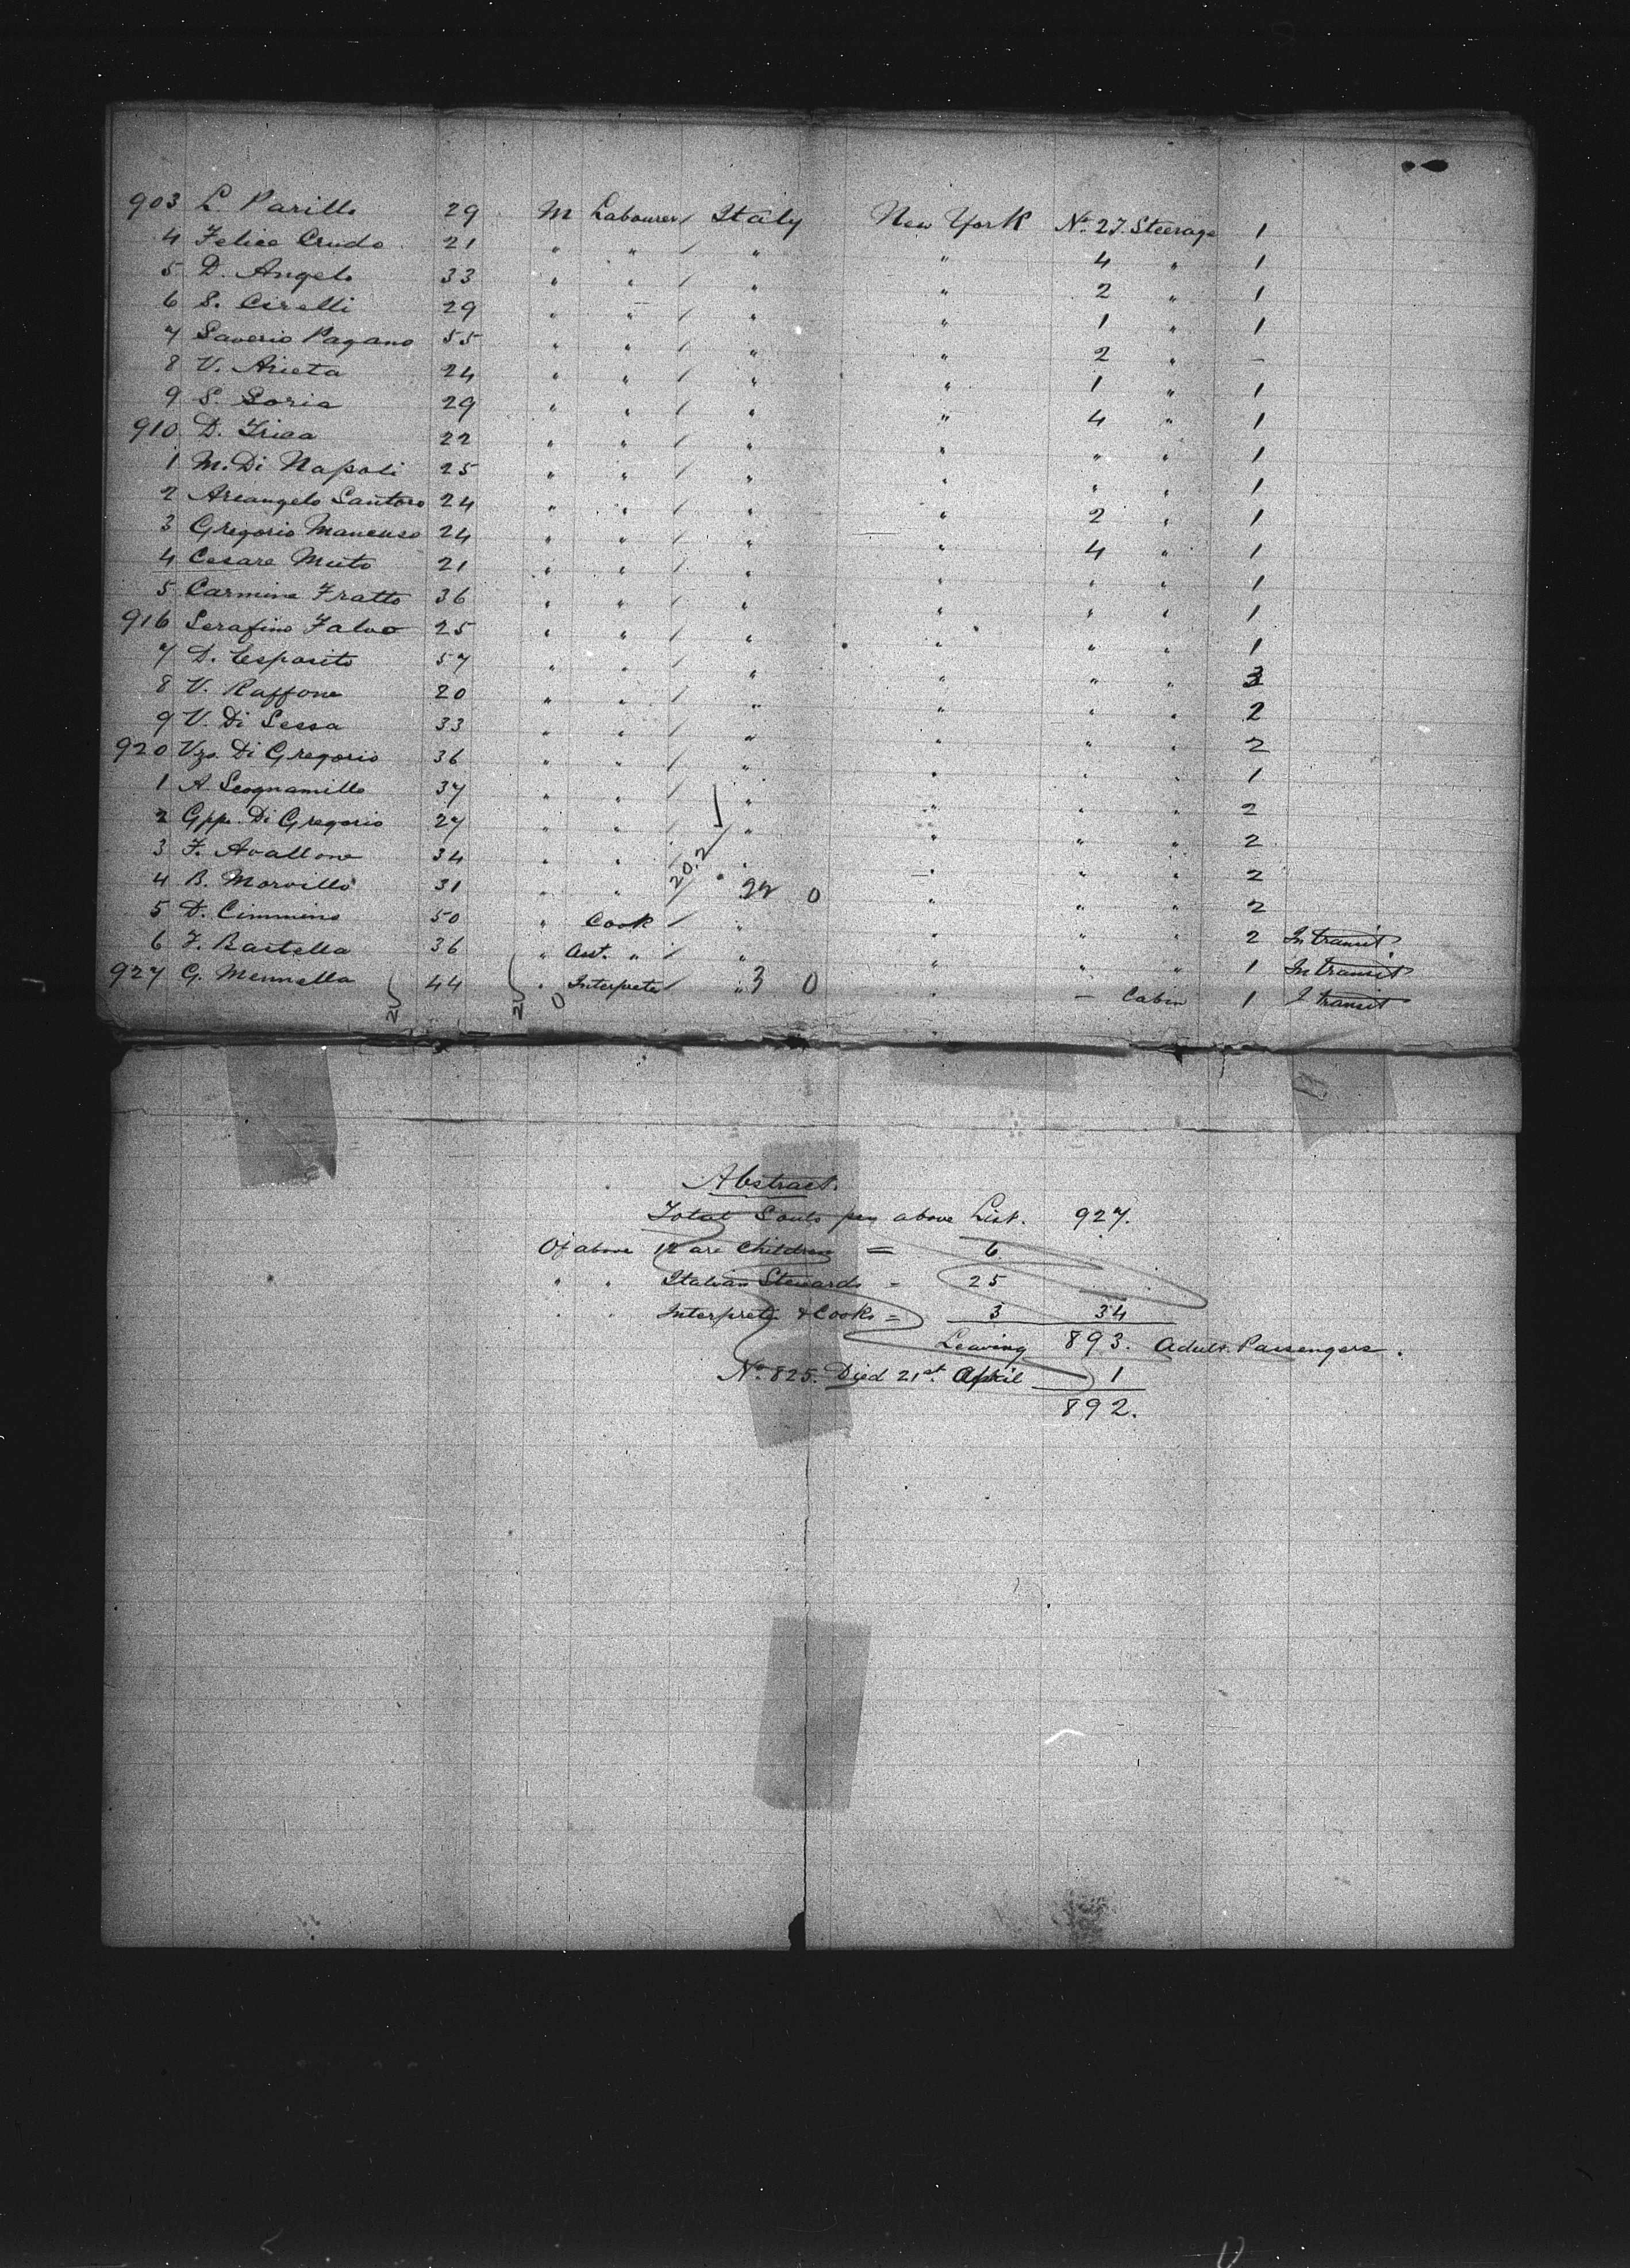 903 L. Parillo 29 M Labourer / Italy New York No. 2J. Steerage 1
4 Felice Crudo 21 " " / " " 4 " 1
5 D. Angelo 33 " " / " " 2 " 1
6 S. Cirelli 29 " " / " " 1 " 1
7 Saverio Pagano 55 " " / " " 2 " -
8 V. Arieta 24 " " / " " 1 " 1
9 S. Soria 29 " " / " " 4 " 1
910 D. 22 " " / " " " " 1
1 M. Di Napoli 25 " " / " " " " 1
2 Arcangelo Santoro 24 " " / " " 2 " 1
3 Gregorio Mancuso 24 " " / " " 4 " 1
4 Cesare Muto 21 " " / " " " " 1
5 Carmine Fratto 36 " " / " " " " 1
916 Serafino Falvo 25 " " / " " " " 1
7 D. Esposito 57 " " / " " " " 3
8 V. Raffone 20 " " / " " " " 2
9 V. Di Sessa 33 " " / " " " " 2
920 Vzo. Di Gregorio 36 " " / " " " " 1
1 A. Scognamillo 37 " " / " " " " 2
2 Gpp. Di Gregorio 27 " " / " " " " 2
3 F. Avallone 34 " " / " " " " 2
4 B. Morvillo 31 " " / 20.2 " 22 0 " " " 2
5 D. Cimmino 50 " Cook / " " " " 2 In transit
6 F. Bartella 36 " Ast. " / " " " " 1 In transit
927 G. Mennella 44 " Interpreter / " 3 0 " - Cabin 1 I transit
25 25 0
Abstract.
Total Souls per above List. 927.
Of above 12 are Children = 6
" " Italian Stewards = 25
" " Interpreter & Cooks = 3 34
Leaving 893. Adult Passengers.
No. 825. Died 21st. April 1
892.